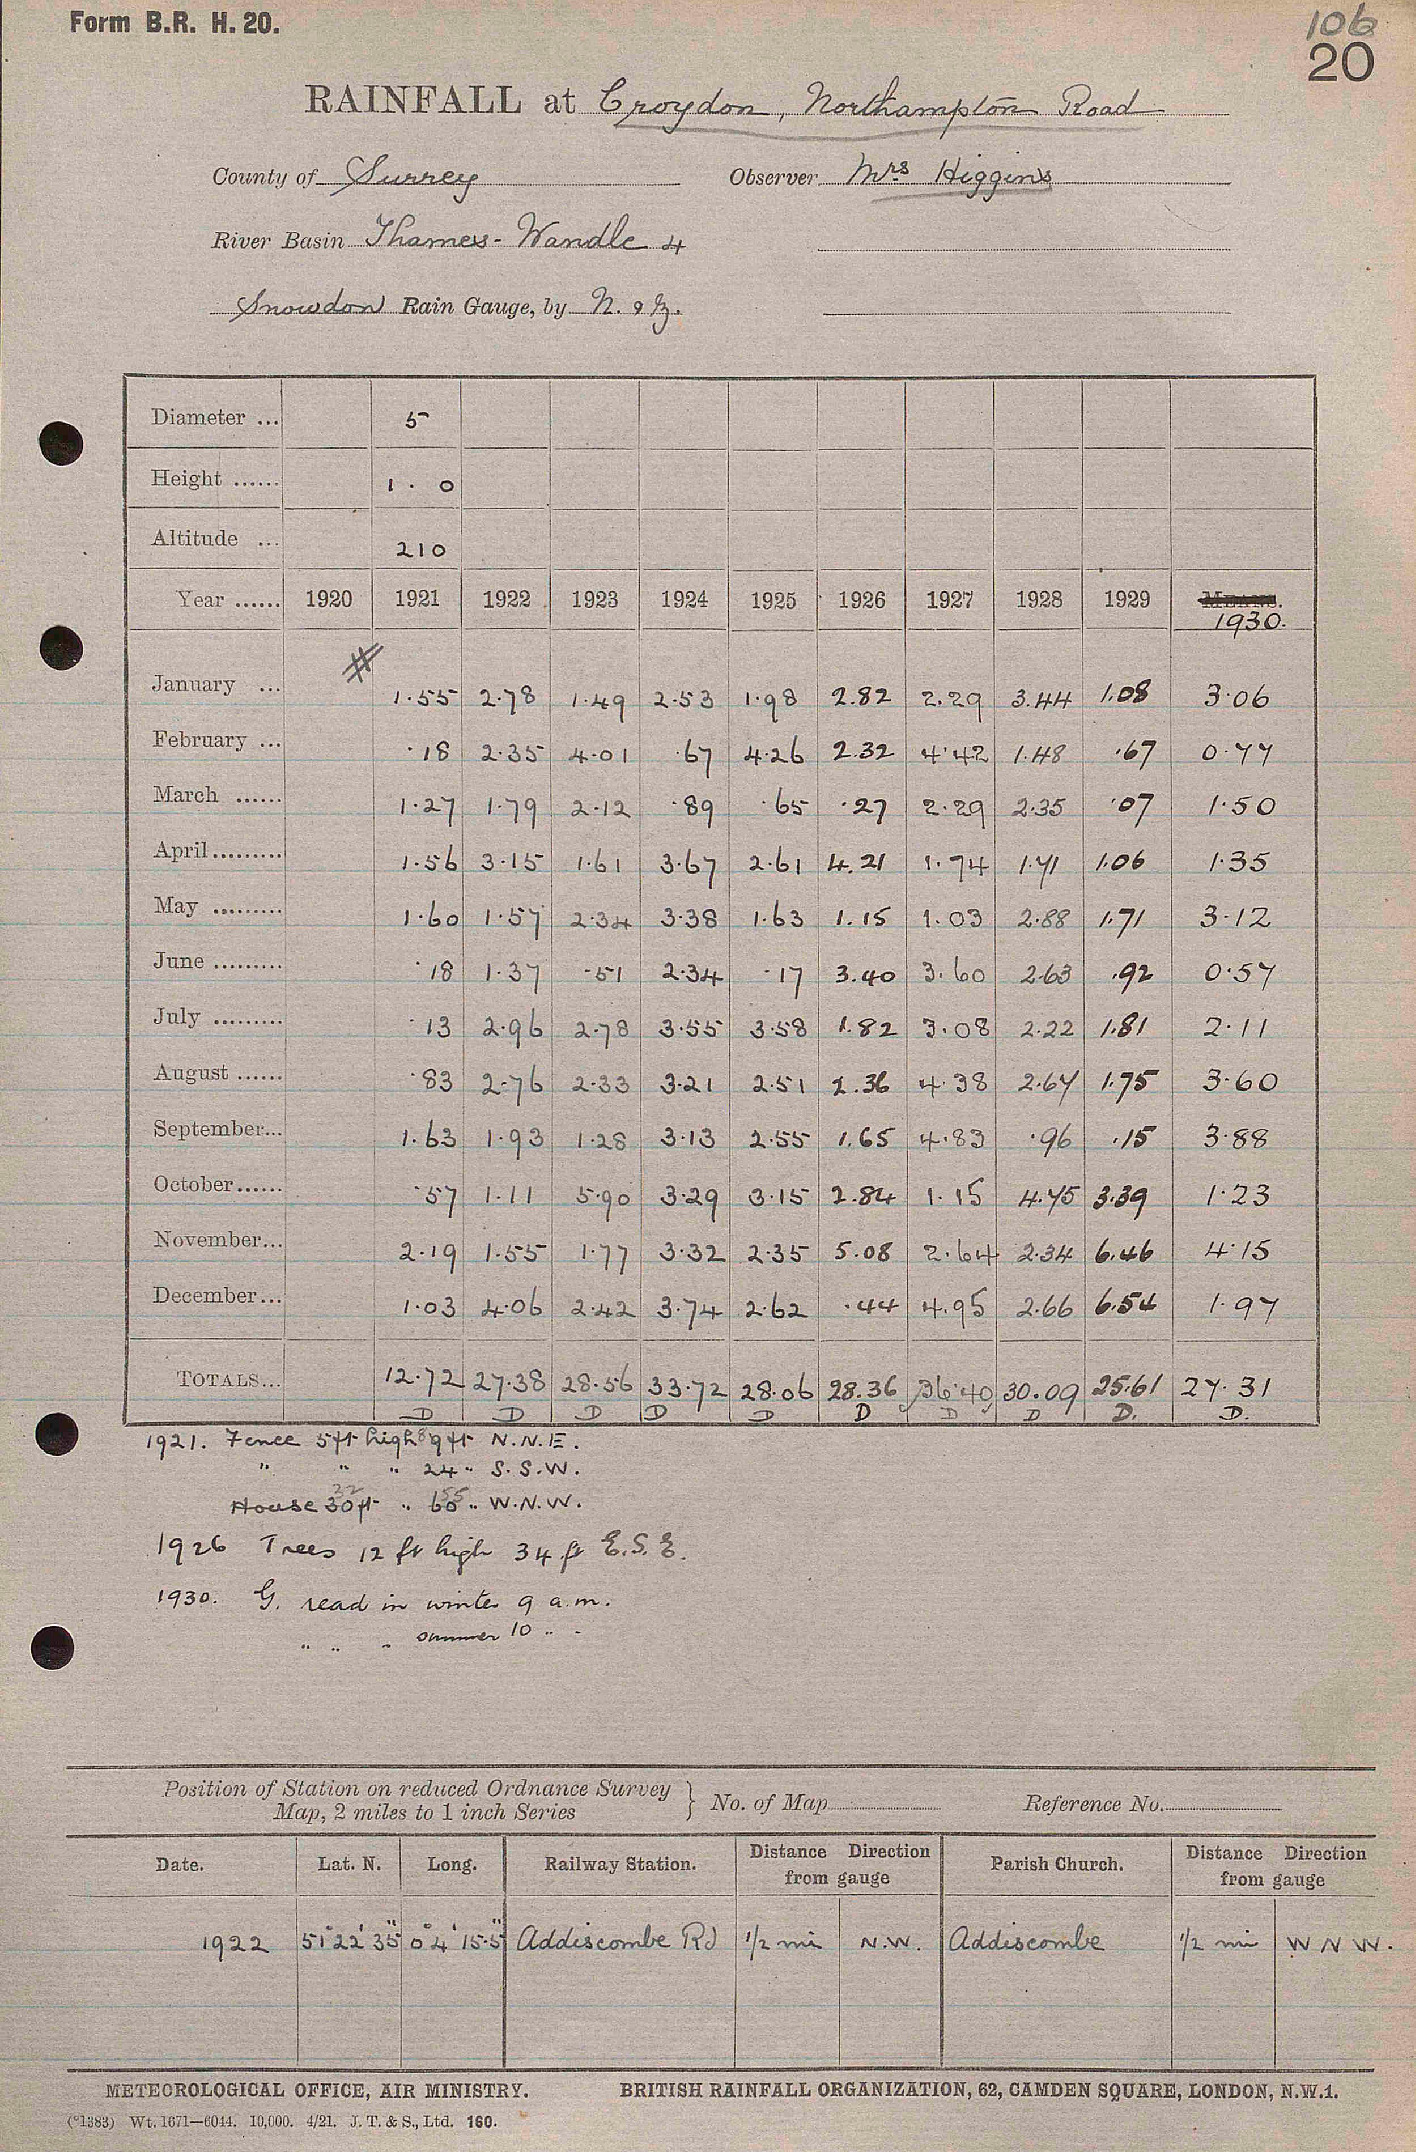 Form B.R. H. 20.
106
20
RAINFALL at Croydon, Northampton Road
County of Surrey Observer Mrs Higgins
River Basin Thames - Wandle 4
Snowdon Rain Gauge, by N. & Z.
Diameter ... 5
Height ...... 1 . 0
Altitude ... 210
Year ...... 1920 1921 1922 1923 1924 1925 1926 1927 1928 1929 MEANS.
1930.
#
January ... 1.55 2.78 1.49 2.53 1.98 2.82 2.29 3.44 1.08 3.06
February ... .18 2.35 4.01 .67 4.26 2.32 4.42 1.48 .67 0.77
March ...... 1.27 1.79 2.12 .89 .65 .27 2.29 2.35 .07 1.50
April......... 1.56 3.15 1.61 3.67 2.61 4.21 1.74 1.71 1.06 1.35
May ......... 1.60 1.57 2.34 3.38 1.63 1.15 1.03 2.88 1.71 3.12
June ......... .18 1.37 .51 2.34 .17 3.40 3.60 2.63 .92 0.57
July ......... .13 2.96 2.78 3.55 3.58 1.82 3.08 2.22 1.81 2.11
August ...... .83 2.76 2.33 3.21 2.51 2.36 4.38 2.67 1.75 3.60
September... 1.63 1.93 1.28 3.13 2.55 1.65 4.83 .96 .15 3.88
October...... .57 1.11 5.90 3.29 3.15 2.84 1.15 4.75 3.39 1.23
November... 2.19 1.55 1.77 3.32 2.35 5.08 2.64 2.34 6.46 4.15
December... 1.03 4.06 2.42 3.74 2.62 .44 4.95 2.66 6.54 1.97
TOTALS... 12.72 27.38 28.56 33.72 28.06 28.36 36.40 30.09 25.61 27.31
D D D D D D D D D. D.
1921. Fence 5ft high 9ft N.N.E.
" " " 24 " S.S.W.
32 55
House 30ft " 60 " W.N.W.
1926 Trees 12 ft high 34 ft E.S.E.
1930. G. read in winter 9 a.m.
" " " summer 10 " "
Position of Station on reduced Ordnance Survey
Map, 2 miles to 1 inch Series } No. of Map Reference No.
Date. Lat. N. Long. Railway Station. Distance Direction from gauge Parish Church. Distance Direction from gauge
1922 51° 22' 35" 0° 4' 15.5" Addiscombe Rd 1/2 mi N.W. Addiscombe 1/2 mi W N W.
METEOROLOGICAL OFFICE, AIR MINISTRY. BRITISH RAINFALL ORGANIZATION, 62, CAMDEN SQUARE, LONDON, N.W.1.
(*1383) Wt. 1671—6044. 10,000. 4/21. J. T. & S., Ltd. 160.